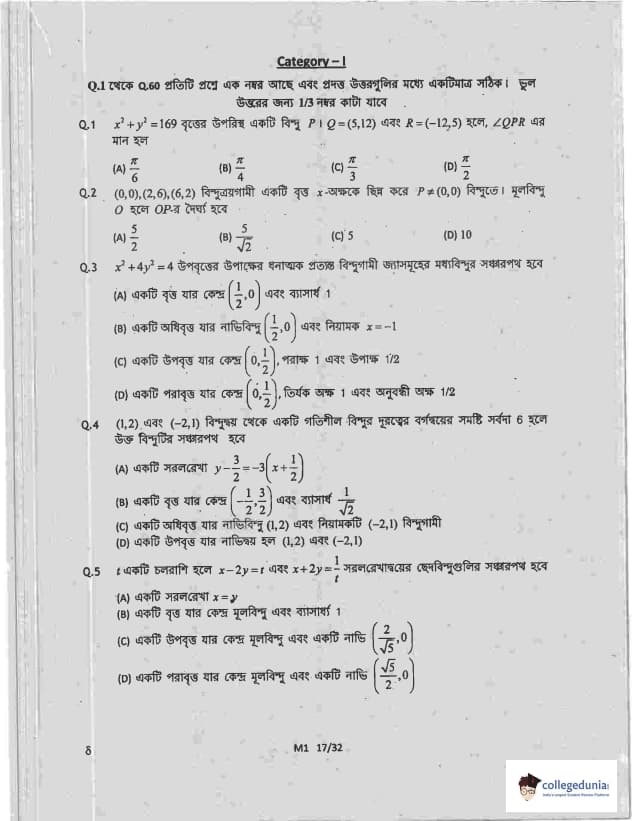 Category – I
Q.1 থেকে Q.60 প্রতিটি প্রশ্নে এক নম্বর আছে এবং প্রদত্ত উত্তরগুলির মধ্যে একটিমাত্র সঠিক। ভুল
উত্তরের জন্য 1/3 নম্বর কাটা যাবে
Q.1 x² + y² = 169 বৃত্তের উপরিস্থ একটি বিন্দু P। Q = (5,12) এবং R = (−12,5) হলে, ∠QPR এর
মান হল
(A) π/6 (B) π/4 (C) π/3 (D) π/2
Q.2 (0,0),(2,6),(6,2) বিন্দুত্রয়গামী একটি বৃত্ত x-অক্ষকে ছিন্ন করে P ≠ (0,0) বিন্দুতে। মূলবিন্দু
O হলে OP-র দৈর্ঘ্য হবে
(A) 5/2 (B) 5/√2 (C) 5 (D) 10
Q.3 x² + 4y² = 4 উপবৃত্তের উপাক্ষের ধনাত্মক প্রত্যন্ত বিন্দুগামী জ্যাসমূহের মধ্যবিন্দুর সঞ্চারপথ হবে
(A) একটি বৃত্ত যার কেন্দ্র (1/2, 0) এবং ব্যাসার্ধ 1
(B) একটি অধিবৃত্ত যার নাভিবিন্দু (1/2, 0) এবং নিয়ামক x = −1
(C) একটি উপবৃত্ত যার কেন্দ্র (0, 1/2), পরাক্ষ 1 এবং উপাক্ষ 1/2
(D) একটি পরাবৃত্ত যার কেন্দ্র (0, 1/2), তির্যক অক্ষ 1 এবং অনুবন্ধী অক্ষ 1/2
Q.4 (1,2) এবং (−2,1) বিন্দুদ্বয় থেকে একটি গতিশীল বিন্দুর দূরত্বের বর্গদ্বয়ের সমষ্টি সর্বদা 6 হলে
উক্ত বিন্দুটির সঞ্চারপথ হবে
(A) একটি সরলরেখা y − 3/2 = −3(x + 1/2)
(B) একটি বৃত্ত যার কেন্দ্র (−1/2, 3/2) এবং ব্যাসার্ধ 1/√2
(C) একটি অধিবৃত্ত যার নাভিবিন্দু (1,2) এবং নিয়ামকটি (−2,1) বিন্দুগামী
(D) একটি উপবৃত্ত যার নাভিদ্বয় হল (1,2) এবং (−2,1)
Q.5 t একটি চলরাশি হলে x − 2y = t এবং x + 2y = 1/t সরলরেখাদ্বয়ের ছেদবিন্দুগুলির সঞ্চারপথ হবে
(A) একটি সরলরেখা x = y
(B) একটি বৃত্ত যার কেন্দ্র মূলবিন্দু এবং ব্যাসার্ধ্য 1
(C) একটি উপবৃত্ত যার কেন্দ্র মূলবিন্দু এবং একটি নাভি (2/√5, 0)
(D) একটি পরাবৃত্ত যার কেন্দ্র মূলবিন্দু এবং একটি নাভি (√5/2, 0)
M1 17/32
collegedunia
India's largest Student Review Platform